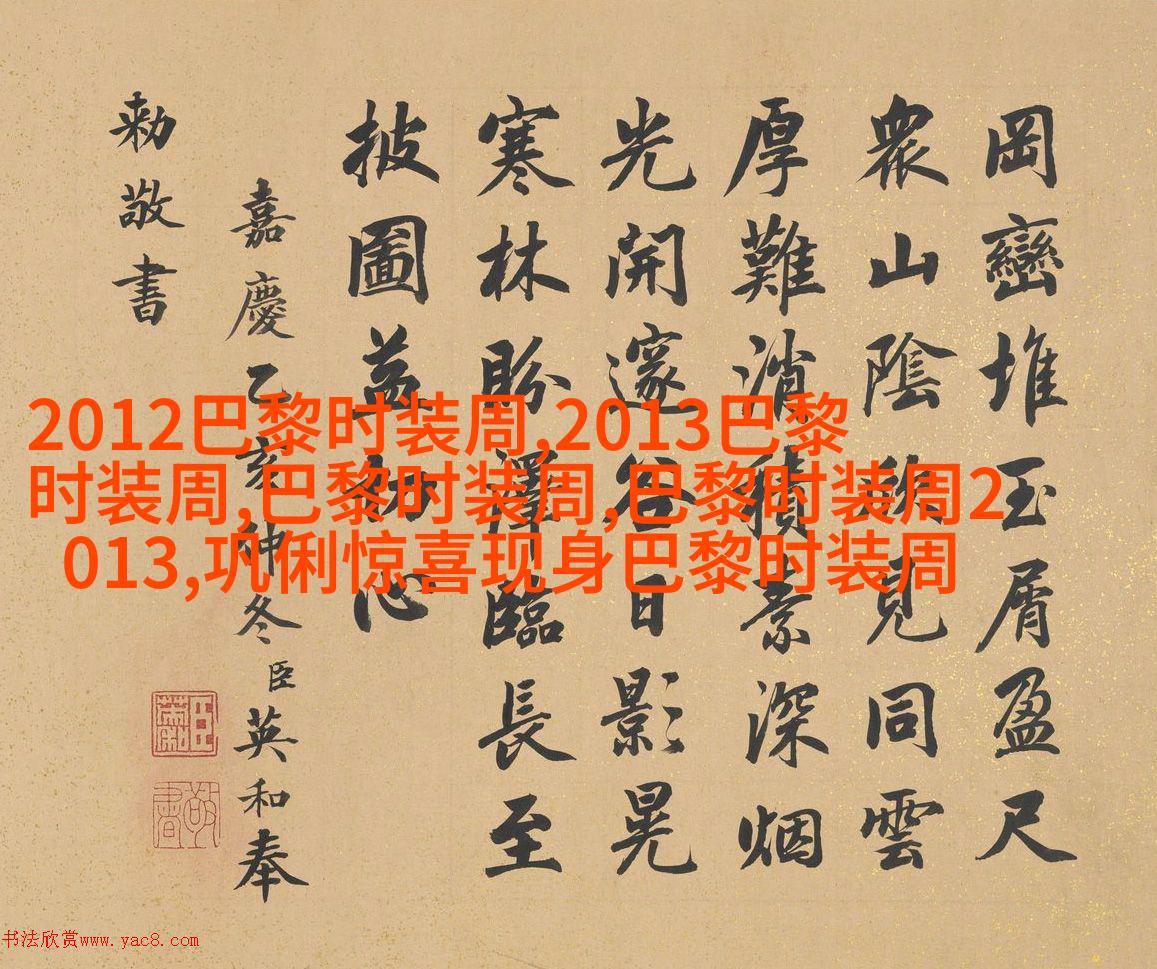 岡巒堆玉屑盈尺
衆山陰見同雲
厚難消積素深烟
光開邃谷日影晃
寒林盼澤臨長至
披圖益心
嘉慶乙亥仲冬臣英和奉
勅敬書
敬書
2012巴黎时装周,2013巴黎
时装周,巴黎时装周,巴黎时装周2
013,巩俐惊喜现身巴黎时装周
书法欣赏www.yac8.com